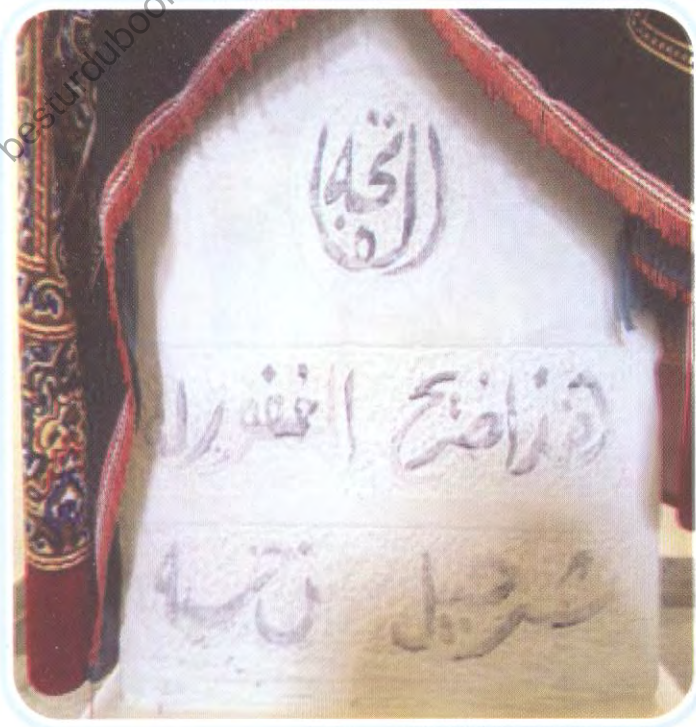 besturduboo
الفاتحه
هذا ضريح المغفور له
شرحبيل بن حسنه